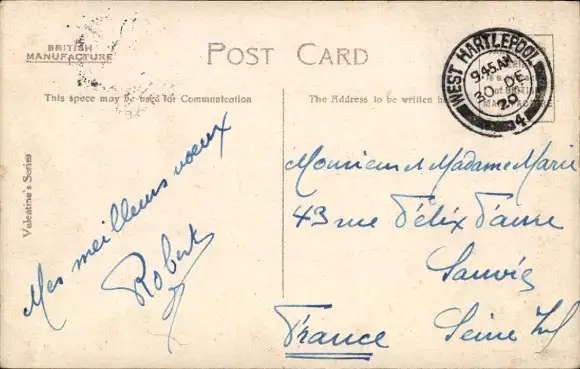 BRITISH
MANUFACTURE
POST CARD
This space may be used for Communication
The Address to be written he
WEST HARTLEPOOL
9.45 AM
30 DE
20
4
Valentine's Series
Mes meilleurs voeux
Robert
Monsieur et Madame Marie
43 rue Félix Faure
Sanvic
France Seine Inf